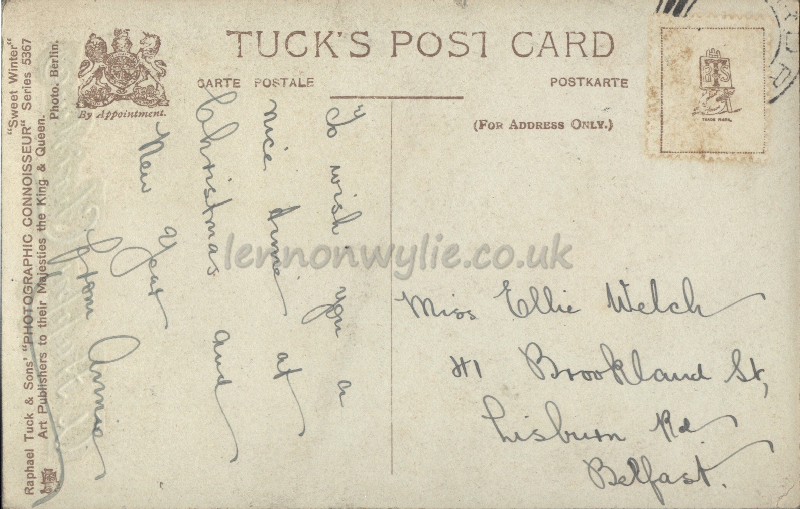 TUCK'S POST CARD
CARTE POSTALE
POSTKARTE
(FOR ADDRESS ONLY.)
By Appointment.
TRADE MARK.
"Sweet Winter"
Raphael Tuck & Sons' "PHOTOGRAPHIC CONNOISSEUR" Series 5367
Art Publishers to their Majesties the King & Queen. Photo. Berlin.
To wish you a
nice time at
Christmas and
New Year
from Annie
Miss Ellie Welch
41 Brookland St,
Lisburn Rd
Belfast.
lennonwylie.co.uk